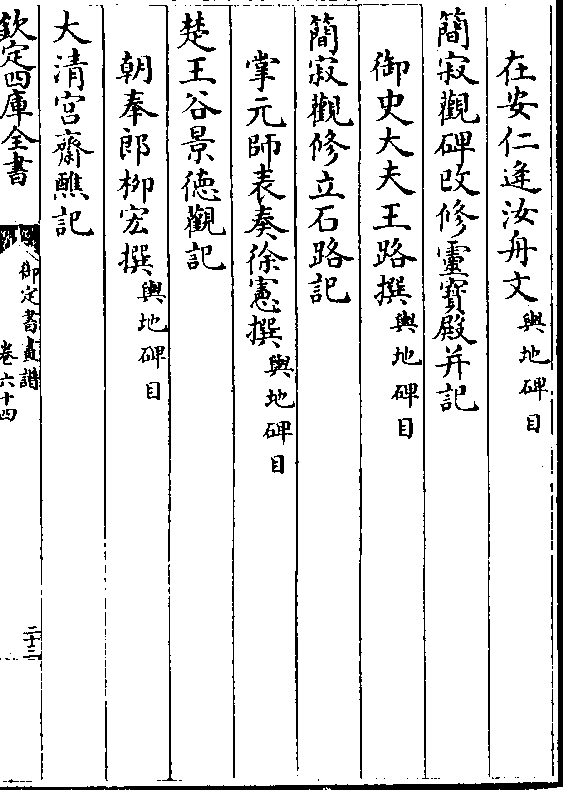 在安仁逢汝舟文輿地碑目
簡寂觀碑改修靈寶殿并記
御史大夫王路撰輿地碑目
簡寂觀修立石路記
掌元師表奏徐憲撰輿地碑目
楚王谷景德觀記
朝奉郎栁宏撰輿地碑目
大清宮齋醮記
欽定四庫全書
御定書畫譜
卷六十四
二十三